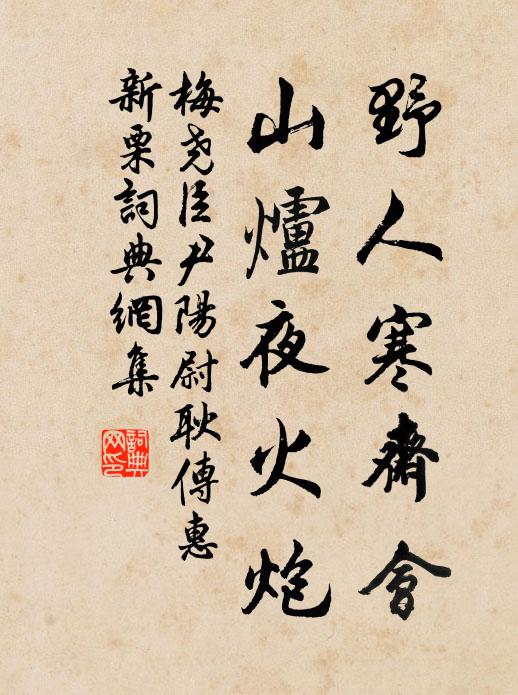 野人寒齋會
山爐夜火炮
梅堯臣尹陽尉耿傳惠
新栗詞典網集
詞典
网印